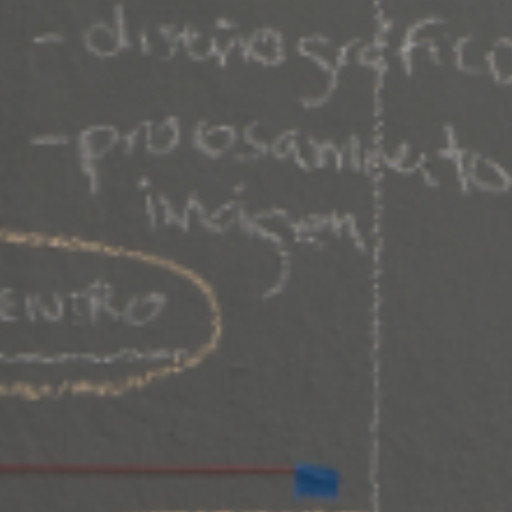 - diseño gráfico
- proosamineto
imágen
ENTRO